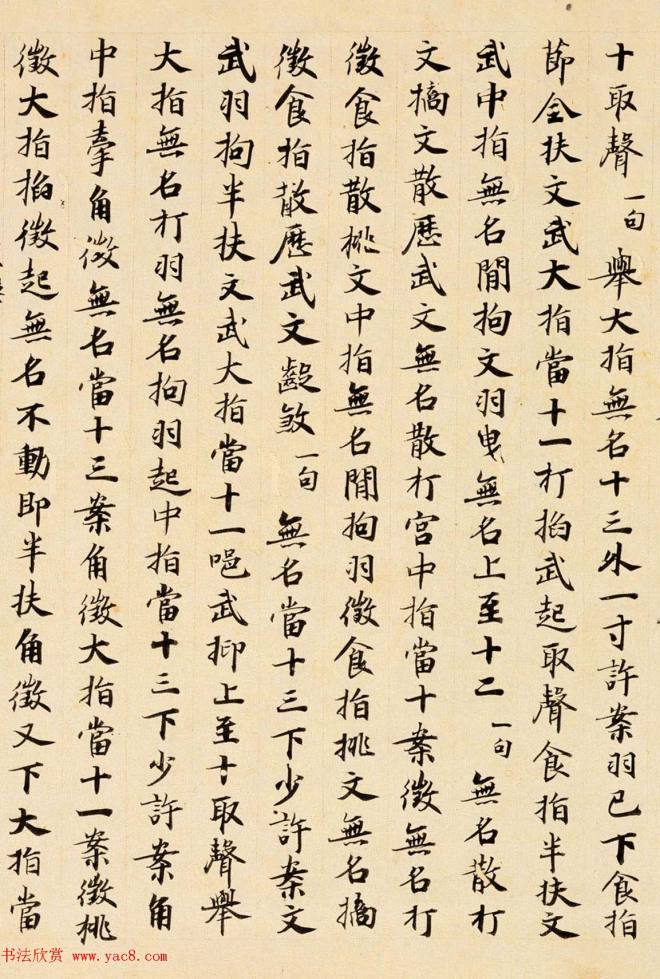 十取聲一句舉大指無名十三外一寸許案羽已下食指
節全扶文武大指當十一打搯武起取聲食指半扶文
武中指無名間拘文羽曳無名上至十二一句無名散打
文擿文散歷武文無名散打宮中指當十案徵無名打
徵食指散挑文中指無名間拘羽徵食指挑文無名擿
徵食指散歷武文齪散一句無名當十三下少許案文
武羽拘半扶文武大指當十一唈武抑上至十取聲舉
大指無名打羽無名拘羽起中指當十三下少許案角
中指搴角徵無名當十三案角徵大指當十一案徵挑
徵大指搯徵起無名不動即半扶角徵又下大指當
书法欣赏 www.yac8.com